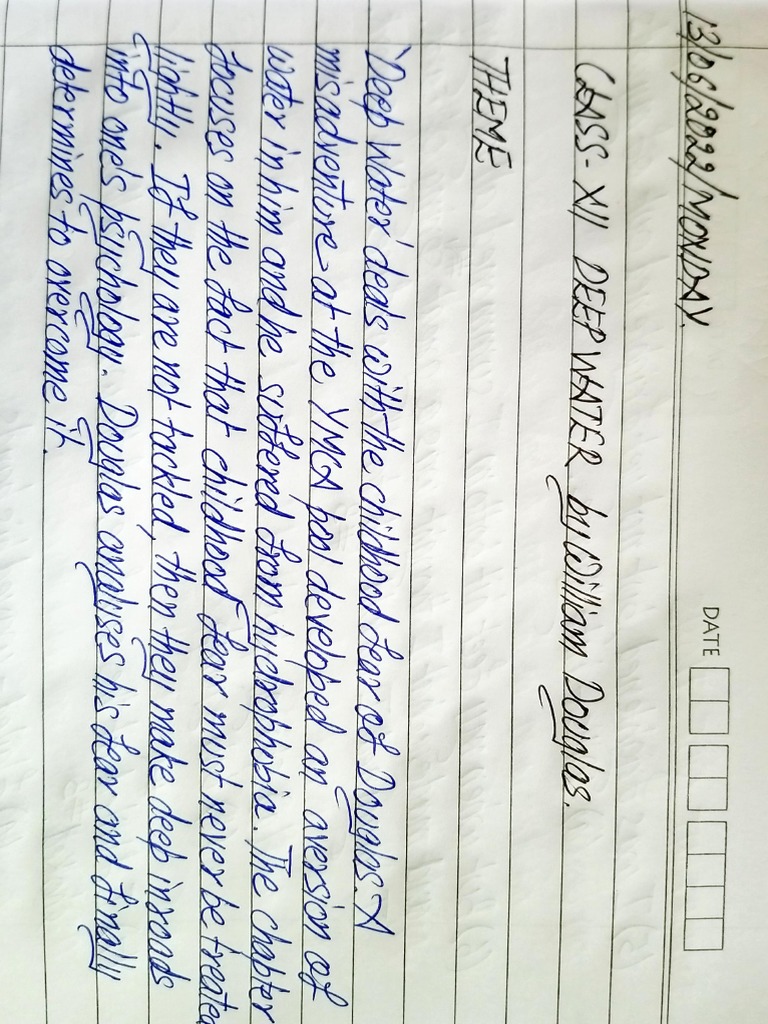 13/06/2022/MONDAY.
DATE
CLASS- XII DEEP WATER by William Douglas.
THEME
'Deep Water' deals with the childhood fear of Douglas. A
misadventure at the YMCA pool developed an aversion of
water in him and he suffered from hydrophobia. The chapter
focuses on the fact that childhood fear must never be treated
lightly. If they are not tackled, then they make deep inroads
into one's psychology. Douglas analyses his fear and finally
determines to overcome it.